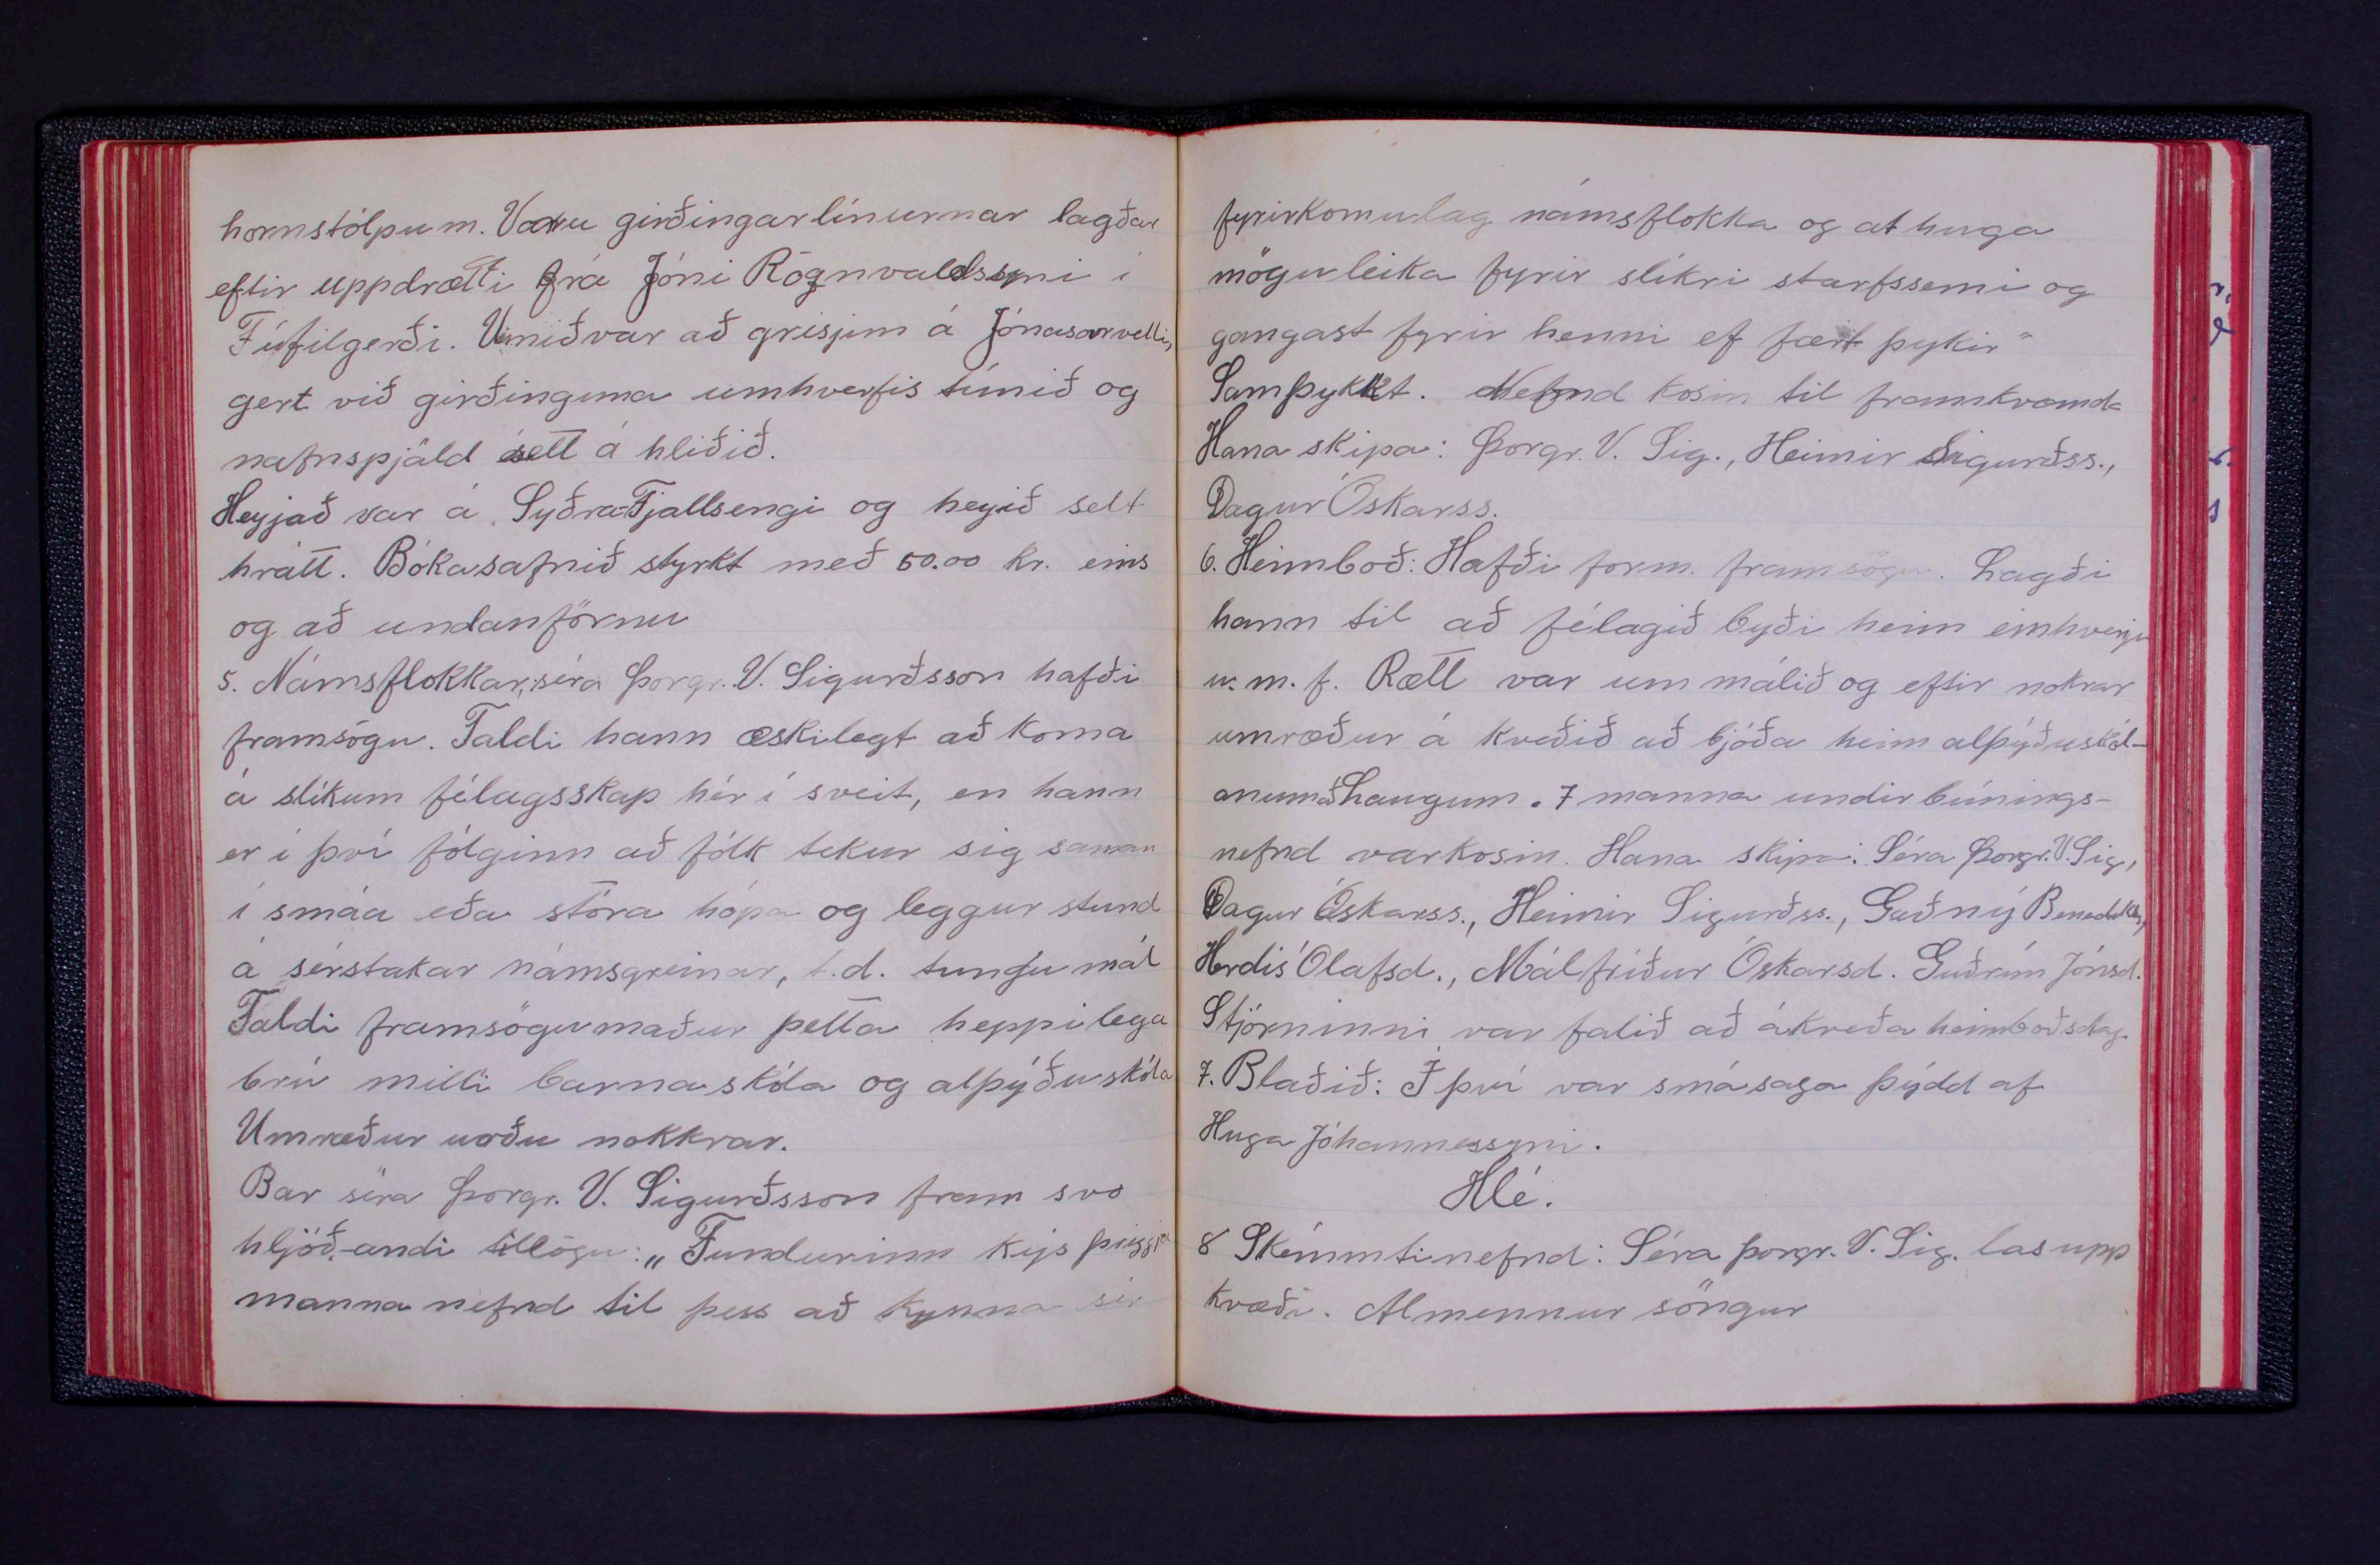 hornstólpum. Voru girðingarlínurnar lagðar
eftir uppdrætti frá Jóni Rögnvaldssyni í
Fífilgerði. Unnið var að grisjun á Jónasarvelli,
gert við girðinguna umhverfis túnið og
nafnspjáld sett á hliðið.
Heyjað var á Syðra-Fjallsengi og heyið selt
hrátt. Bókasafnið styrkt með 50.00 kr. eins
og að undanförnu
5. Námsflokkar, séra Þorgr. V. Sigurðsson hafði
framsögu. Taldi hann æskilegt að koma
á slíkum félagsskap hér í sveit, en hann
er í því fólginn að fólk tekur sig saman
í smáa eða stóra hópa og leggur stund
á sérstakar námsgreinar, t.d. tungumál
Taldi framsögumaður þetta heppilega
brú milli barnaskóla og alþýðuskóla
Umræður urðu nokkrar.
Bar séra Þorgr. V. Sigurðsson fram svo
hljóð-andi tillögu: „Fundurinn kýs þriggja
manna nefnd til þess að kynna sér
fyrirkomulag námsflokka og athuga
möguleika fyrir slíkri starfssemi og
gangast fyrir henni ef fært þykir"
Samþykkt. Nefnd kosin til framkvæmda
Hana skipa: Þorgr. V. Sig., Heimir Sigurðss.,
Dagur Óskarss.
6. Heimboð: Hafði form. framsögu. Lagði
hann til að félagið byði heim einhverju
u. m. f. Rætt var um málið og eftir nokrar
umræður á kveðið að bjóða heim alþýðuskól-
anum á Laugum. 7 manna undirbúnings-
nefnd var kosin. Hana skipa: Séra Þorgr. V. Sig,
Dagur Óskarss., Heimir Sigurðss., Guðný Benedikts,
Herdís Ólafsd., Málfríður Óskarsd. Guðrún Jónsd.
Stjórninni var falið að ákveða heimboðsdag.
7. Blaðið: Í því var smásaga þýdd af
Huga Jóhannessyni.
Hlé.
8 Skemmtinefnd: Séra Þorgr. V. Sig. las upp
kvæði. Almennur söngur